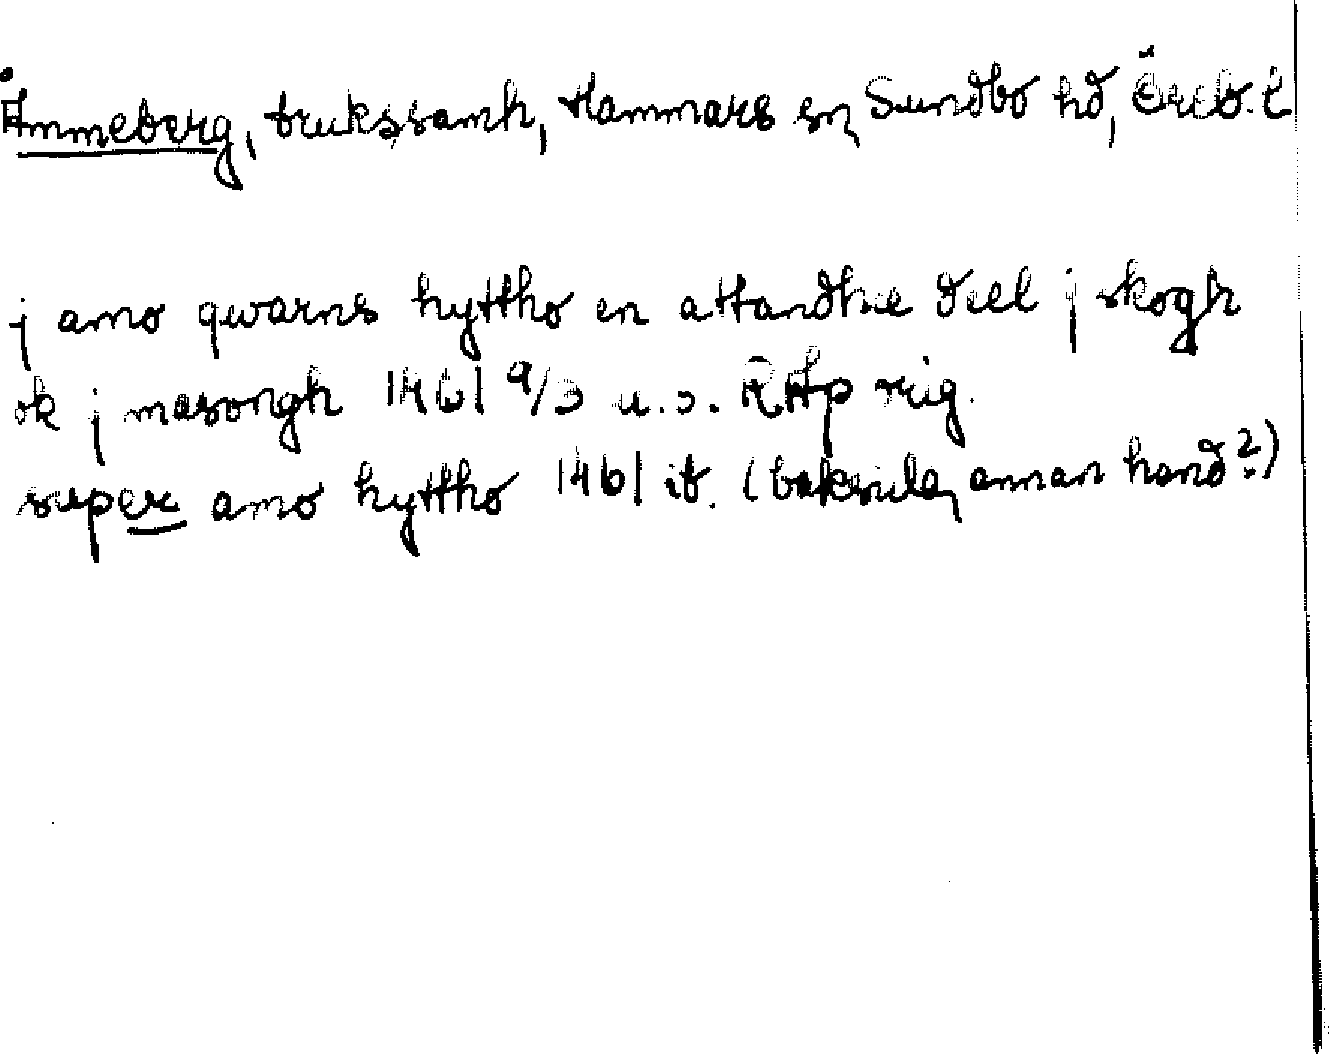 Åmmeberg, brukssamh, Hammars sn, Sundbo hd, Öreb. l
j amo qwarns hyttho en attandhe deel j skogh
ok j masongh 1461 9/3 u.o. RAp sig.
super amo hyttho 1461 ib. (baksida, annan hand?)